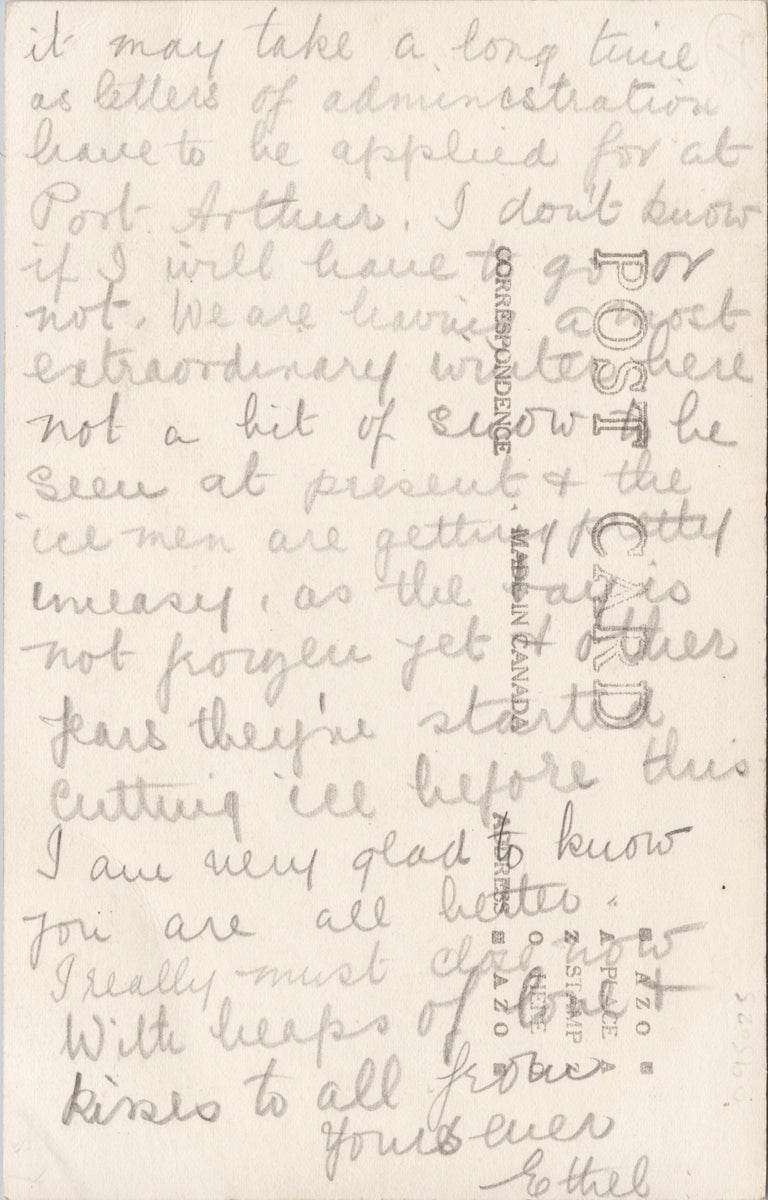 it may take a long time
as letters of administration
have to be applied for at
Port Arthur. I don't know
if I will have to go or
not. We are having a most
extraordinary winter here
not a bit of snow to be
seen at present & the
ice men are getting pretty
uneasy, as the bay is
not frozen yet & other
years they've started
cutting ice before this
I am very glad to know
you are all better.
I really must close now
With heaps of love &
kisses to all from
Yours ever
Ethel
POST CARD
CORRESPONDENCE
MADE IN CANADA
ADDRESS
AZO
PLACE
STAMP
HERE
AZO